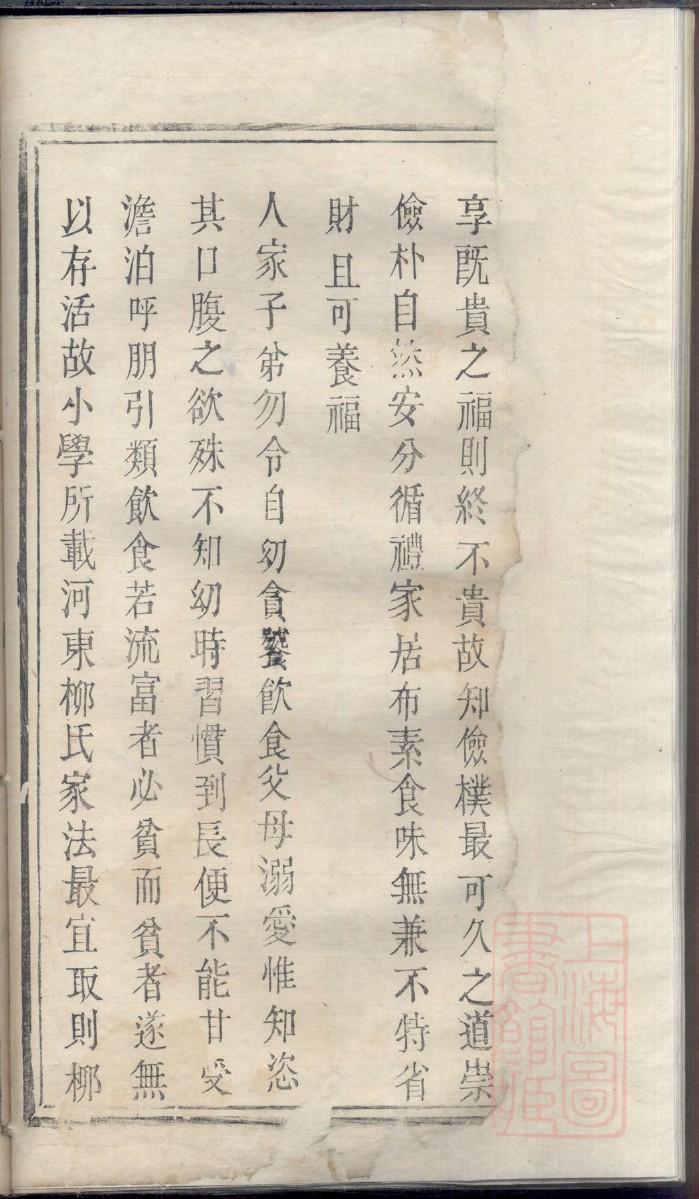 享既貴之福則終不貴故知儉樸最可久之道崇
儉朴自然安分循禮家居布素食味無兼不特省
財且可養福
人家子弟勿令自幼貪饕飲食父母溺愛惟知恣
其口腹之欲殊不知幼時習慣到長便不能甘受
澹泊呼朋引類飲食若流富者必貧而貧者遂無
以存活故小學所載河東柳氏家法最宜取則柳
上海圖
書館藏